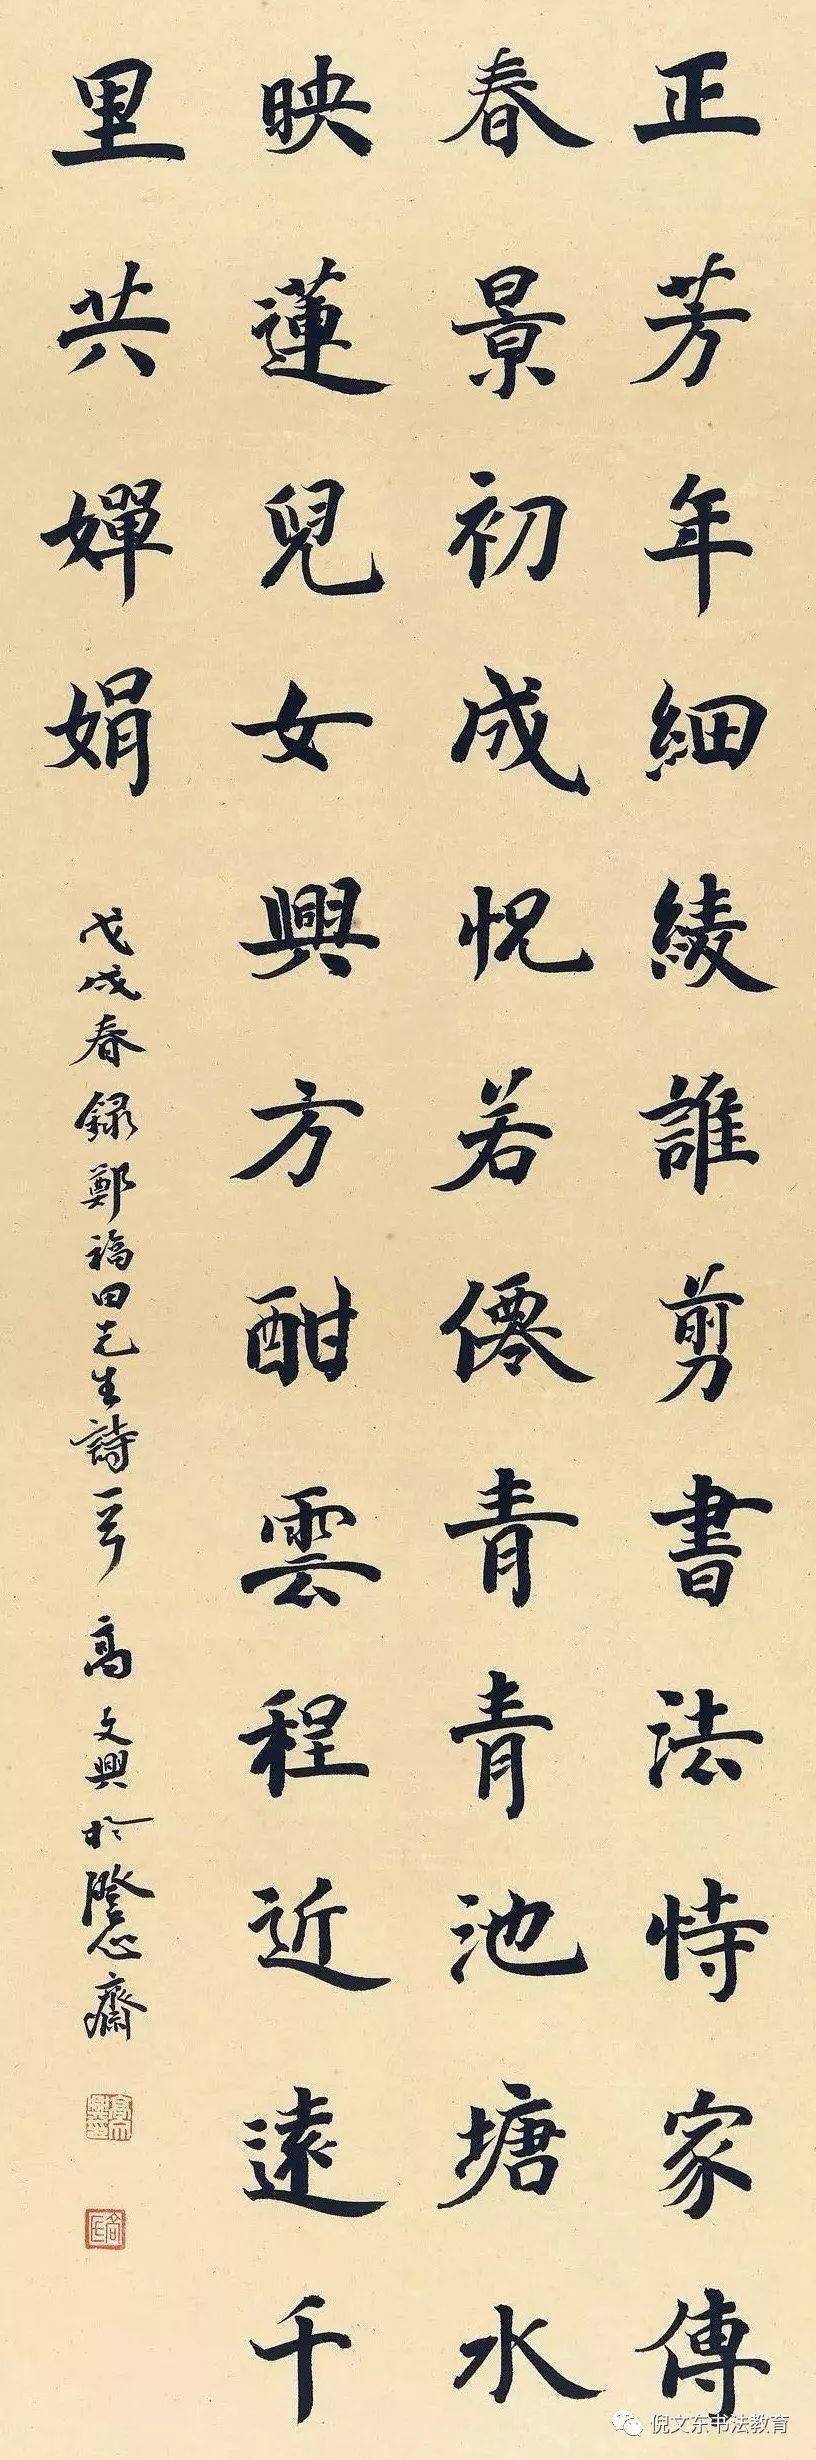 正芳年細綾誰剪書法恃家傳
春景初成怳若僊青青池塘水
映蓮兒女興方酣雲程近遠千
里共嬋娟
戊戌春録鄭福田先生詩一首 高文興於澄心齋
倪文东书法教育